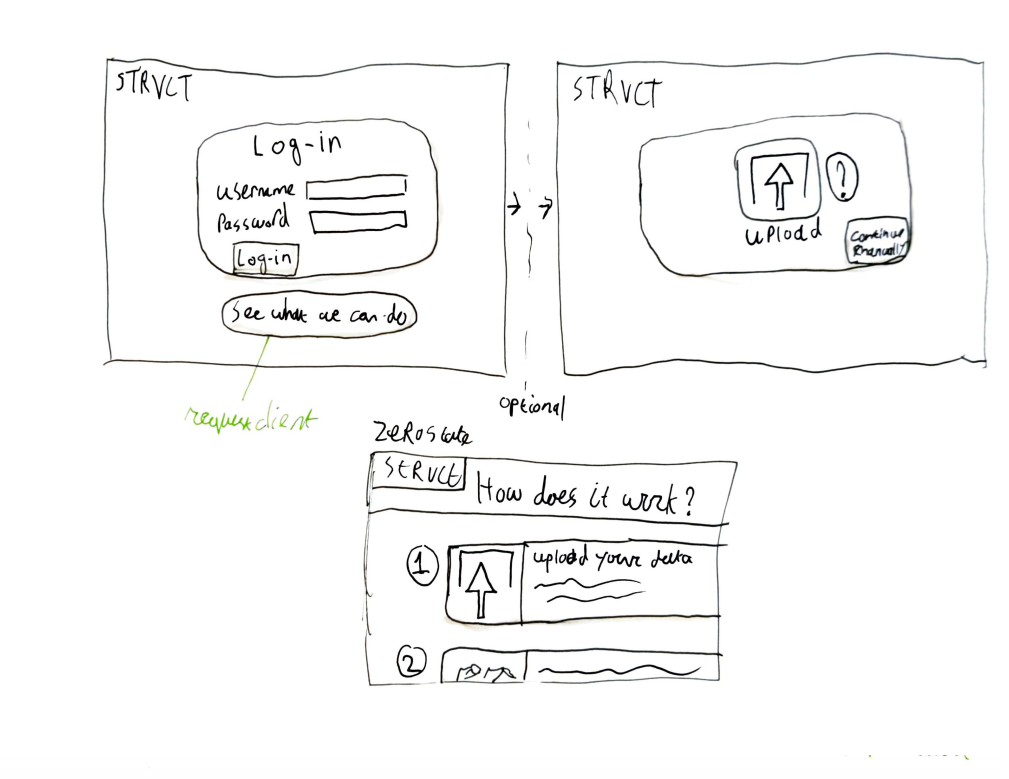 STRVCT
Log-in
username
Password
Log-in
See what we can do
request client
STRVCT
?
UPload
Continue
manually
optional
Zerostate
STRUCt
How does it work?
1
upload your data
2